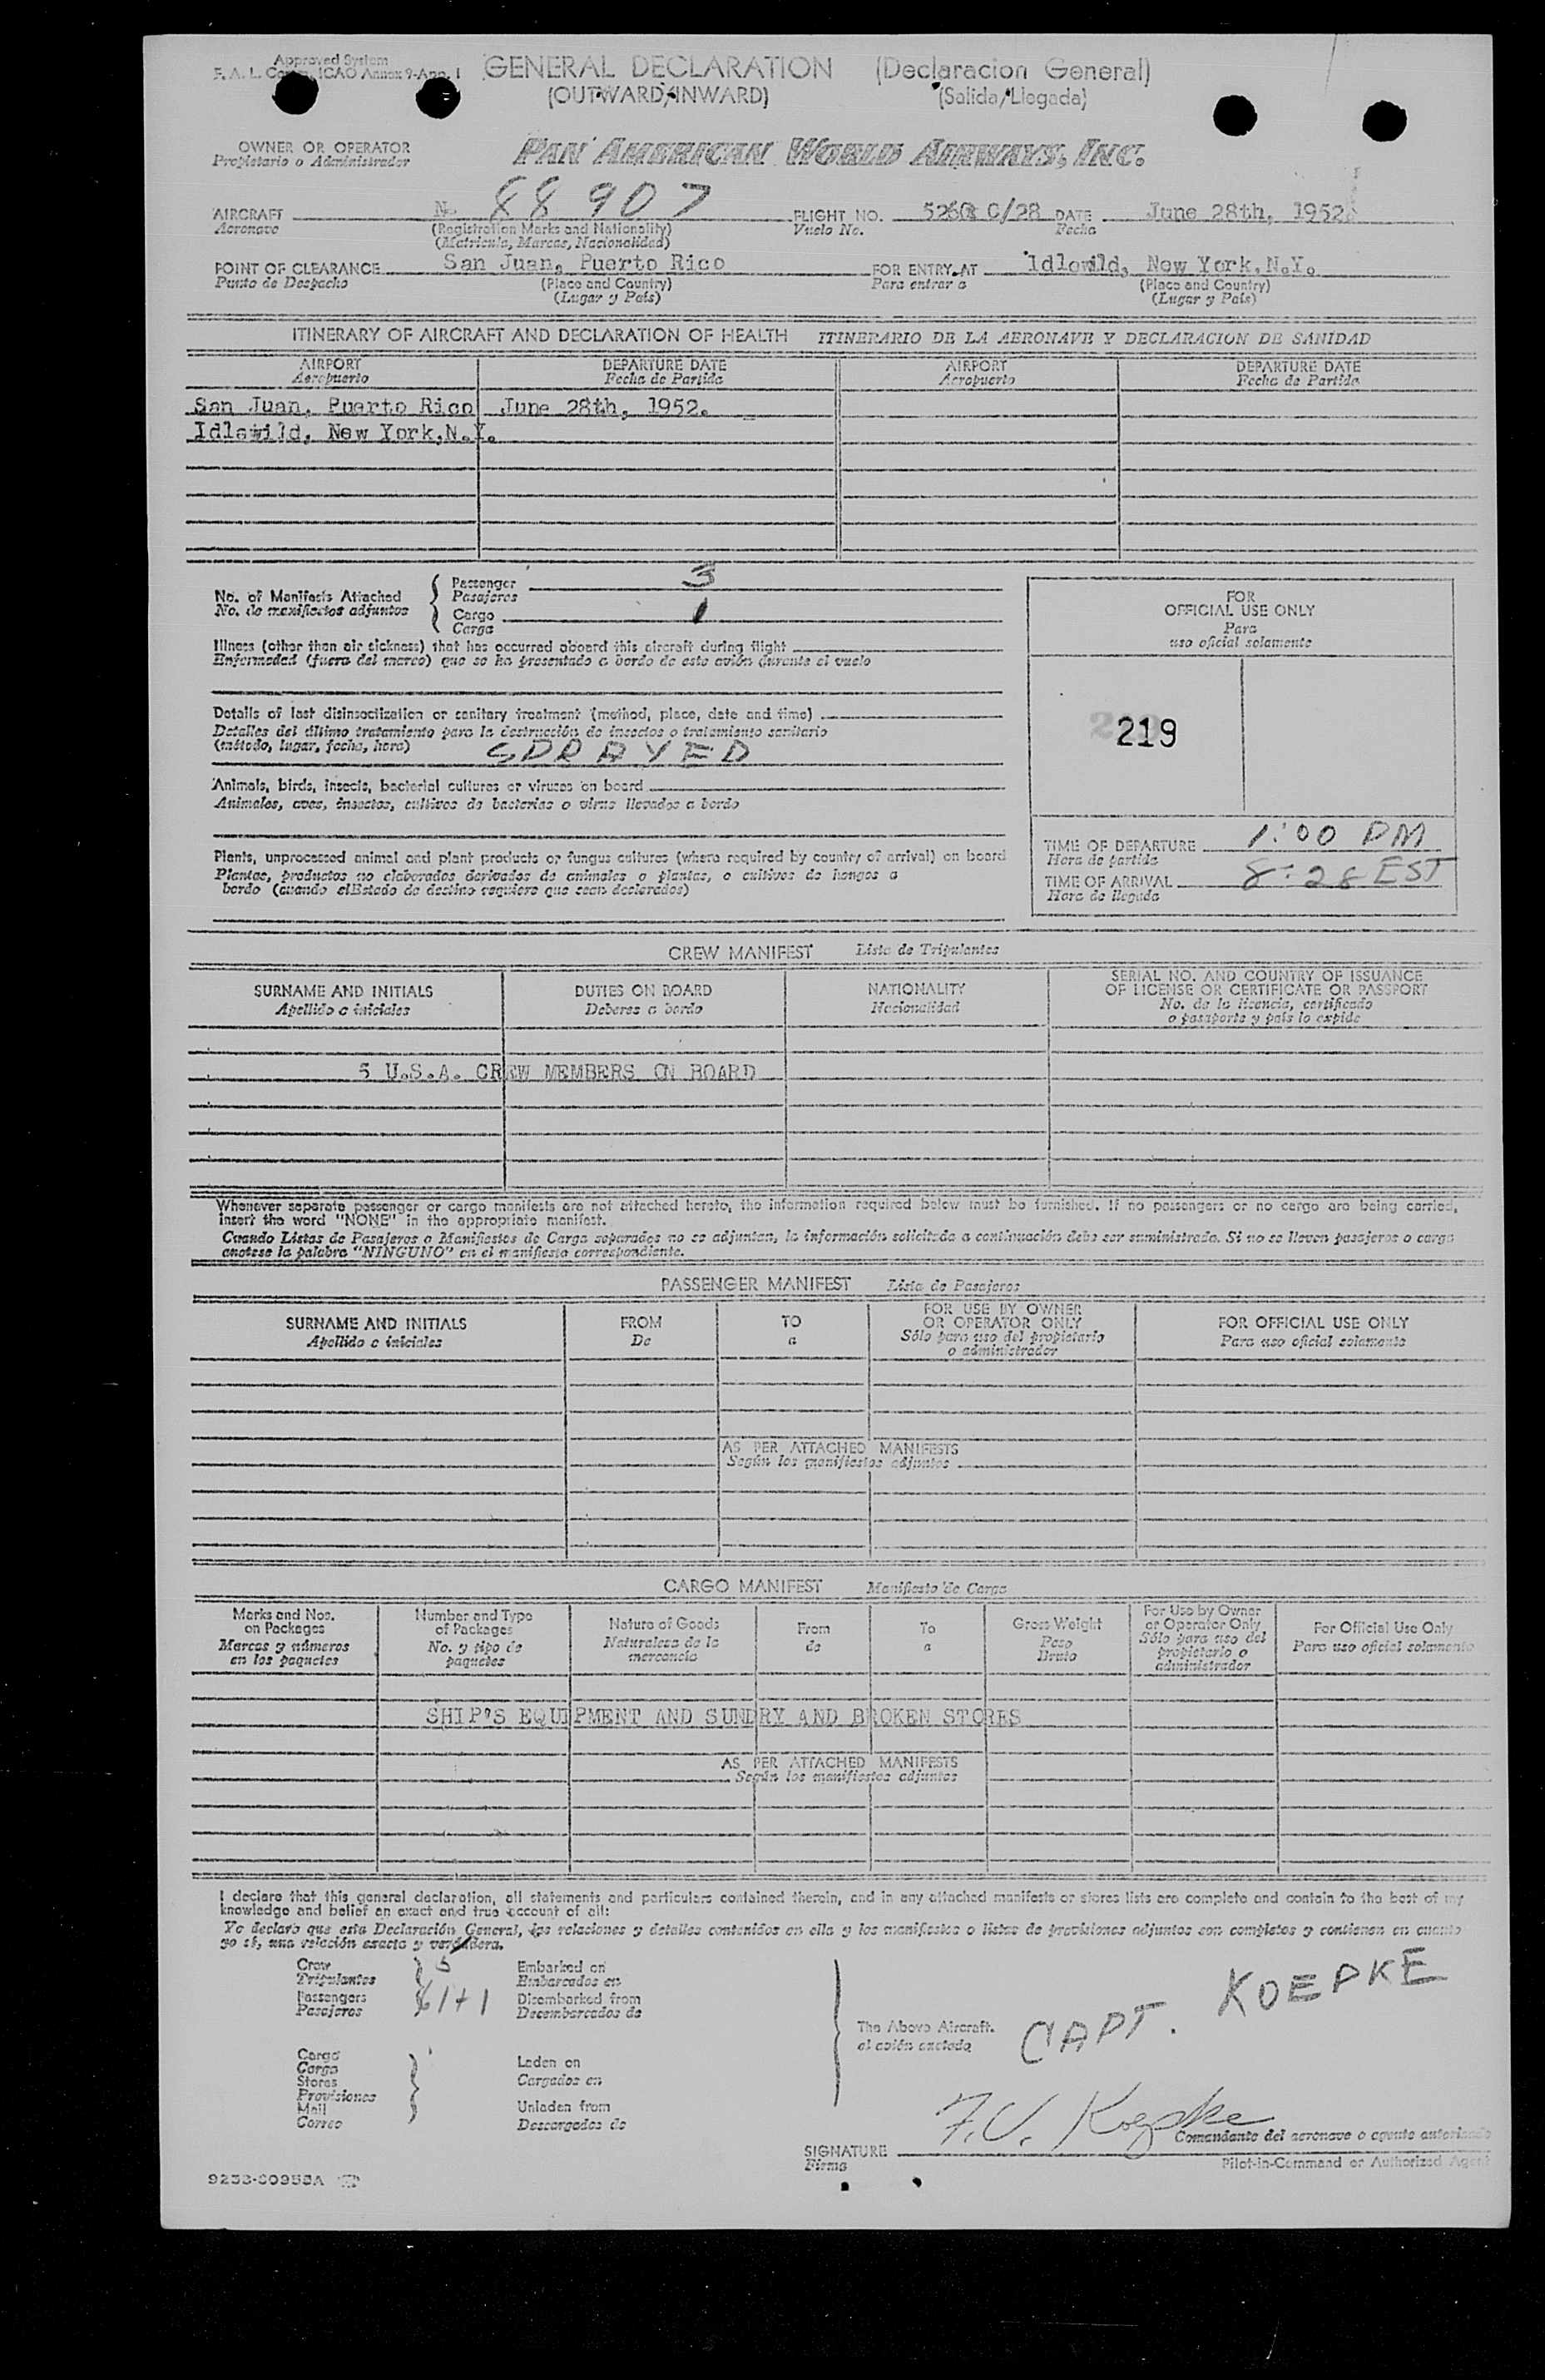 Approved System
F. A. L. ICAO Annex 9-App. I
GENERAL DECLARATION (Declaracion General)
(OUTWARD/INWARD) (Salida/Llegada)
OWNER OR OPERATOR
Propietario o Administrador
PAN AMERICAN WORLD AIRWAYS, INC.
AIRCRAFT N 88907 FLIGHT NO. C/28 DATE June 28th, 1952
Aeronave (Registration Marks and Nationality) Vuelo No. Fecha
(Matricula, Marcas, Nacionalidad)
POINT OF CLEARANCE San Juan, Puerto Rico FOR ENTRY AT Idlewild, New York, N.Y.
Punto de Despacho (Place and Country) Para entrar a (Place and Country)
(Lugar y País) (Lugar y País)
ITINERARY OF AIRCRAFT AND DECLARATION OF HEALTH ITINERARIO DE LA AERONAVE Y DECLARACION DE SANIDAD
AIRPORT DEPARTURE DATE AIRPORT DEPARTURE DATE
Aeropuerto Fecha de Partida Aeropuerto Fecha de Partida
San Juan, Puerto Rico June 28th, 1952.
Idlewild, New York,N.Y.
No. of Manifests Attached
No. de manifiestos adjuntos
Passenger 3
Pasajeros
Cargo 1
Carga
Illness (other than air sickness) that has occurred aboard this aircraft during flight
Enfermedad (fuera del mareo) que se ha presentado a bordo de este avión durante el vuelo
Details of last disinsectization or sanitary treatment (method, place, date and time)
Detalles del último tratamiento para la destrucción de insectos o tratamiento sanitario
(método, lugar, fecha, hora) SPRAYED
Animals, birds, insects, bacterial cultures or viruses on board
Animales, aves, insectos, cultivos de bacterias o virus llevados a bordo
Plants, unprocessed animal and plant products or fungus cultures (where required by country of arrival) on board
Plantas, productos no elaborados derivados de animales o plantas, o cultivos de hongos a
bordo (cuando elEstado de destino requiere que sean declarados)
FOR
OFFICIAL USE ONLY
Para
uso oficial solamente
219
TIME OF DEPARTURE 1:00 PM
Hora de partida
TIME OF ARRIVAL 8:28 EST
Hora de llegada
CREW MANIFEST Lista de Tripulantes
SURNAME AND INITIALS DUTIES ON BOARD NATIONALITY SERIAL NO. AND COUNTRY OF ISSUANCE
OF LICENSE OR CERTIFICATE OR PASSPORT
Apellido e iniciales Deberes a bordo Nacionalidad No. de la licencia, certificado
o pasaporte y país lo expide
5 U.S.A. CREW MEMBERS ON BOARD
Whenever separate passenger or cargo manifests are not attached hereto, the information required below must be furnished. If no passengers or no cargo are being carried,
insert the word "NONE" in the appropriate manifest.
Cuando Listas de Pasajeros o Manifiestos de Carga separados no se adjuntan, la información solicitada a continuación debe ser suministrada. Si no se lleven pasajeros o carga
anotese la palabra "NINGUNO" en el manifiesto correspondiente.
PASSENGER MANIFEST Lista de Pasajeros
SURNAME AND INITIALS FROM TO FOR USE BY OWNER
OR OPERATOR ONLY FOR OFFICIAL USE ONLY
Apellido e iniciales De a Sólo para uso del propietario
o administrador Para uso oficial solamente
AS PER ATTACHED MANIFESTS
Según los manifiestos adjuntos
CARGO MANIFEST Manifiesto de Carga
Marks and Nos.
on Packages
Marcas y números
en los paquetes
Number and Type
of Packages
No. y tipo de
paquetes
Nature of Goods
Naturaleza de la
mercancia
From
de
To
a
Gross Weight
Peso
Bruto
For Use by Owner
or Operator Only
Sólo para uso del
propietario o
administrador
For Official Use Only
Para uso oficial solamente
SHIP'S EQUIPMENT AND SUNDRY AND BROKEN STORES
AS PER ATTACHED MANIFESTS
Según los manifiestos adjuntos
I declare that this general declaration, all statements and particulars contained therein, and in any attached manifests or stores lists are complete and contain to the best of my
knowledge and belief an exact and true account of all:
Yo declaro que esta Declaración General, las relaciones y detalles contenidos en ella y los manifiestos o listas de provisiones adjuntos son completos y contienen en cuanto
yo sé, una relación exacta y verdadera.
Crew 5 Embarked on
Tripulantes Embarcados en
Passengers 61+1 Disembarked from
Pasajeros Desembarcados de
Cargo
Carga
Stores
Provisiones
Mail
Correo
Laden on
Cargados en
Unladen from
Descargados de
The Above Aircraft.
el avión anotado
CAPT. KOEPKE
SIGNATURE F.V. Koepke
Firma
Comandante del aeronave o agente autorizado
Pilot-in-Command or Authorized Agent